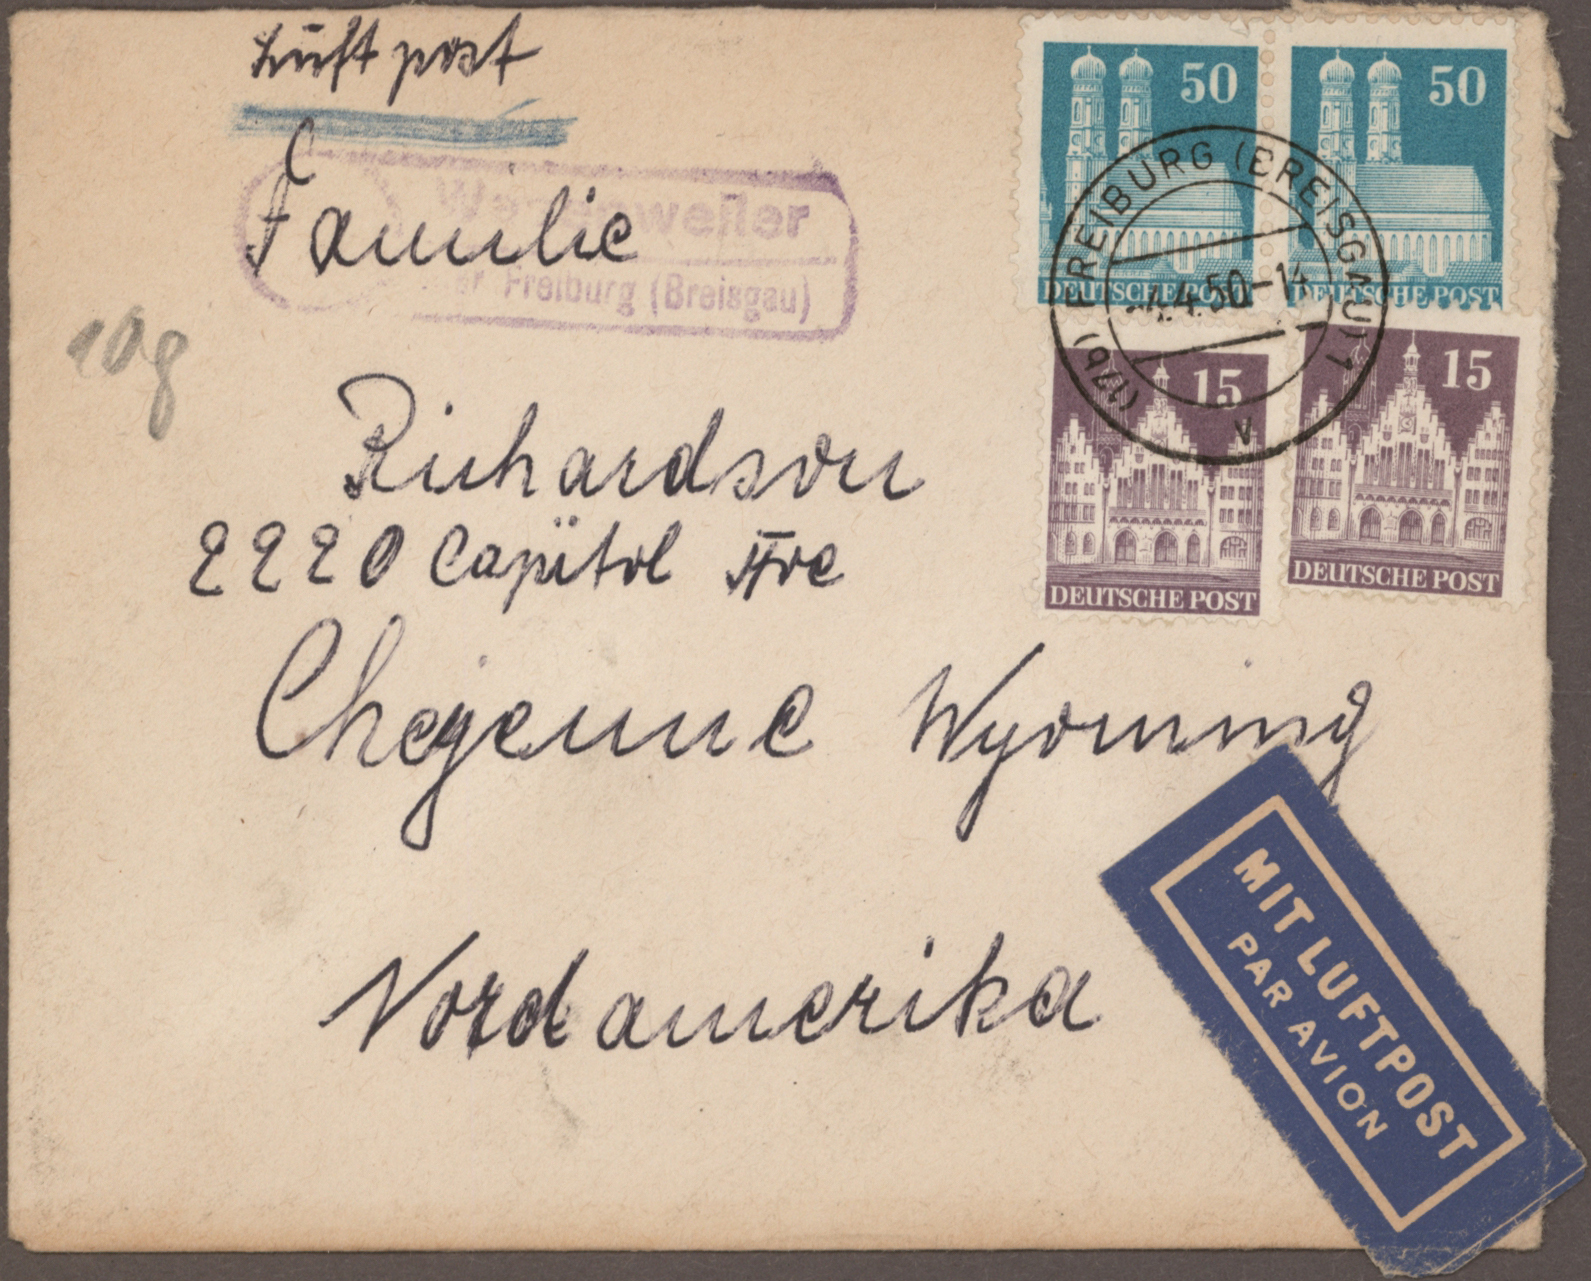 Luftpost
Familie
weiler
er Freiburg (Breisgau)
10g
Richardson
2220 Capitol Ave
Cheyenne Wyoming
Nordamerika
50
50
DEUTSCHE POST
DEUTSCHE POST
15
15
DEUTSCHE POST
DEUTSCHE POST
(17b) FREIBURG (BREISGAU) 1
4.4.50-14
v
MIT LUFTPOST
PAR AVION